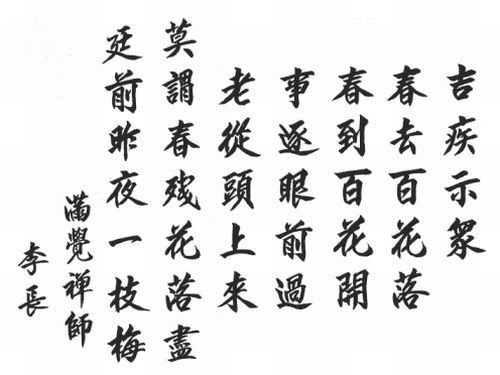 吉疾示眾
春去百花落
春到百花開
事逐眼前過
老從頭上來
莫謂春残花落盡
廷前昨夜一枝梅
滿覺禅師
李長